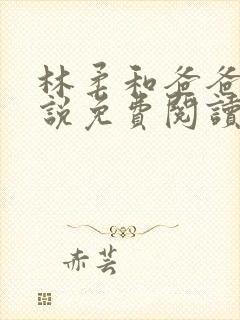 林柔和爸爸
説免費閱讀
赤芸